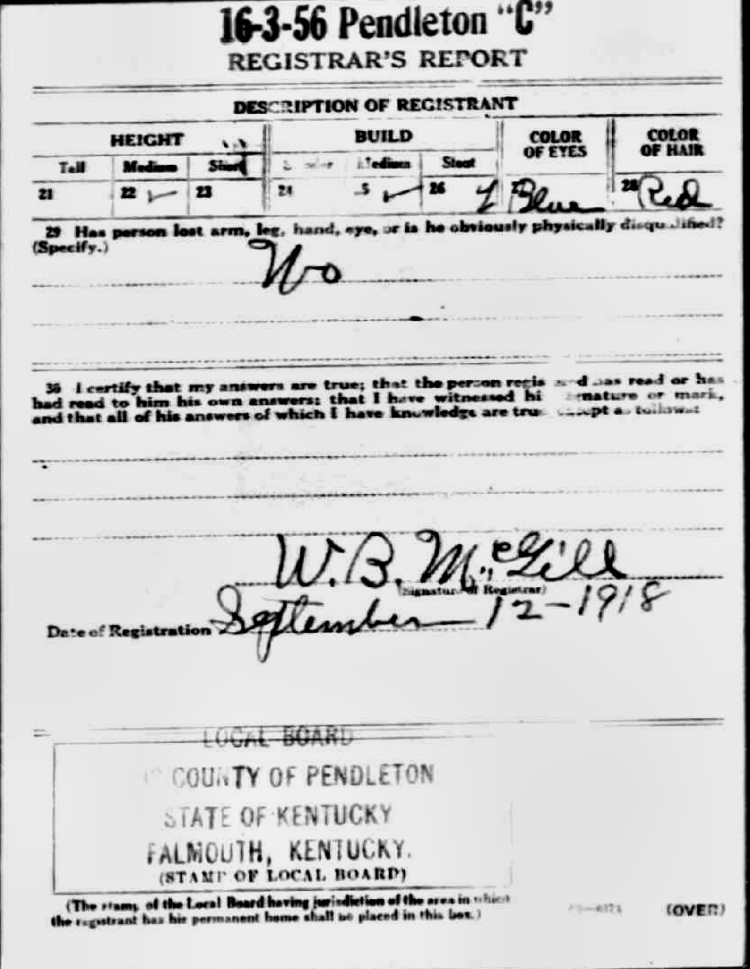 16-3-56 Pendleton "C"
REGISTRAR'S REPORT
DESCRIPTION OF REGISTRANT
HEIGHT BUILD COLOR OF EYES COLOR OF HAIR
Tall Medium Short Medium Stout
21 22 ✓ 23 24 5 ✓ 26 Blue 28 Red
29 Has person lost arm, leg, hand, eye, or is he obviously physically disqualified?
(Specify.)
No
30 I certify that my answers are true; that the person has read or has
had read to him his own answers; that I have witnessed or mark,
and that all of his answers of which I have knowledge are true except as follows:
W. B. McGill
(Signature of Registrar)
Date of Registration September 12-1918
LOCAL BOARD
COUNTY OF PENDLETON
STATE OF KENTUCKY
FALMOUTH, KENTUCKY.
(STAMP OF LOCAL BOARD)
(The stamp of the Local Board having jurisdiction of the area in which
the registrant has his permanent home shall be placed in this box.)
(OVER)